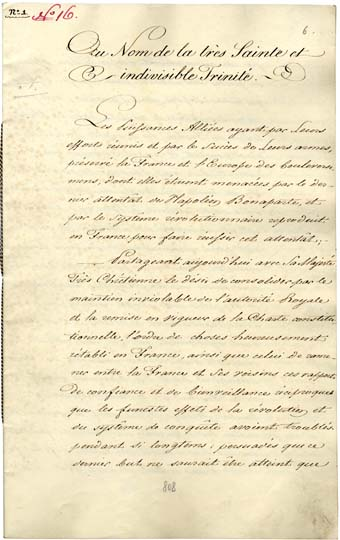 Nº 1. Nº 16.
6.
Au Nom de la très Sainte et
indivisible Trinité.
Les Puissances Alliées ayant par Leurs
efforts réunis et par le succès de Leurs armes,
préservé la France et l'Europe des bouleverse-
mens, dont elles étaient menacées par le der-
nier attentat de Napoléon Bonaparte, et
par le système révolutionnaire reproduit
en France pour faire réussir cet attentat;
Partageant aujourd'hui avec Sa Majesté
Très Chrétienne le désir de consolider par le
maintien inviolable de l'autorité Royale
et la remise en vigueur de la Charte constitu-
tionnelle, l'ordre de choses heureusement
rétabli en France, ainsi que celui de rame-
ner entre la France et Ses voisins ces rapports
de confiance et de bienveillance réciproques
que les funestes effets de la révolution et
du système de conquête avoient troublés
pendant si longtems; persuadés que ce
dernier but ne saurait être atteint que
808